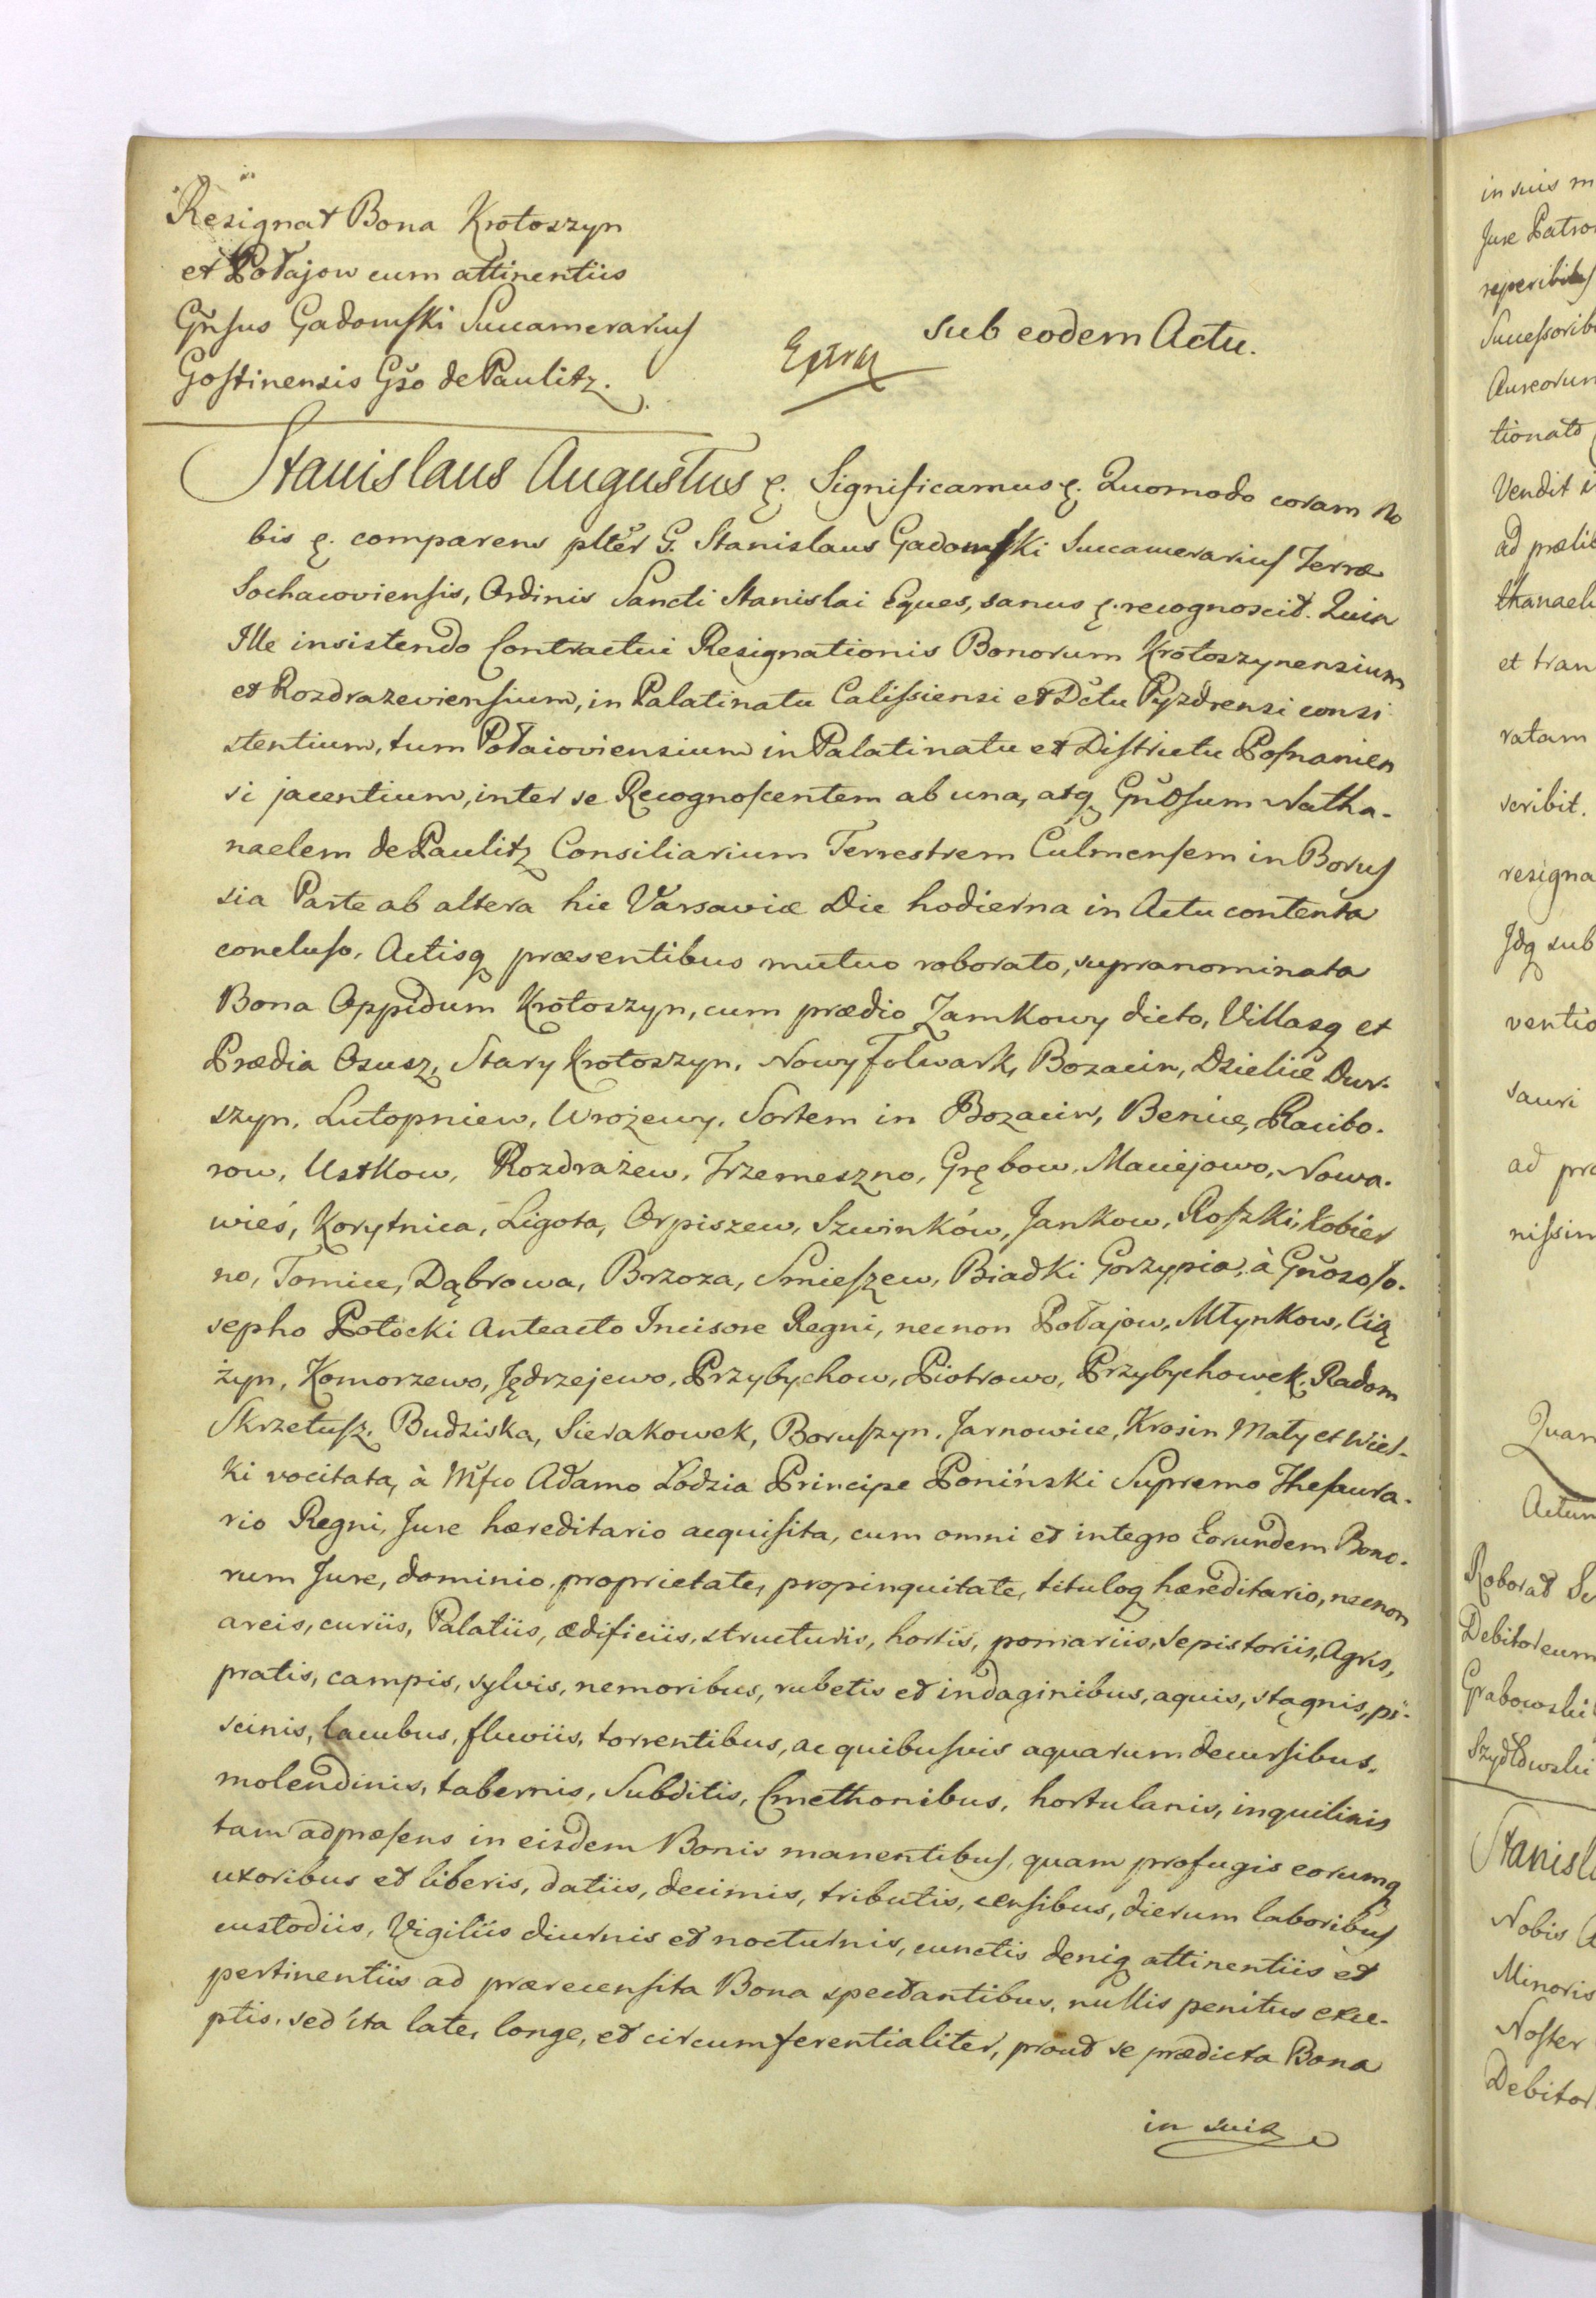 Resignat Bona Krotoszyn
et Połajow cum attinentiis
Gn̄sus Gadomski Succamerarius
Gostinensis Gs̄o de Paulitz.
Extra
Sub eodem Actu.
Stanislaus Augustus ꝑ. Significamus ꝑ. Quomodo coram No
bis ꝑ. comparens pltėr G. Stanislaus Gadomski Succamerarius Terræ
Sochacoviensis, Ordinis Sancti Stanislai Eques, sanus ꝑ. recognoscit. Quia
Ille insistendo Contractui Resignationis Bonorum Krotoszynensium
et Rozdrazeviensium, in Palatinatu Calissiensi et Dc̄tu Pyzdrensi consi
stentium, tum Połaioviensium in Palatinatu et Districtu Posnanien
si jacentium, inter se Recognoscentem ab una, atq Gn̄osum Natha-
naelem de Paulitz Consiliarium Terrestrem Culmensem in Borus
sia Parte ab altera hic Varsaviæ Die hodierna in Actu contenta
concluso, Actisq præsentibus mutuo roborato, supranominata
Bona Oppidum Krotoszyn, cum prædio Zamkowy dicto, Villasq et
Prædia Osusz, Stary Krotoszyn, Nowy folwark, Bozacin, Dzielice Dur-
szyn, Lutopniew, Wrożewy, Sortem in Bozacin, Benice, Racibo-
row, Ustkow, Rozdrażew, Trzemeszno, Grębow, Maciejowo, Nowa-
wieś, Korytnica, Ligota, Orpiszew, Szwinków, Jankow, Roszki, Kobier
no, Tomice, Dąbrowa, Brzoza, Smieszew, Biadki Gorzypia, à Gn̄oso Jo-
sepho Potocki Anteacto Incisore Regni, necnon Połajow, Młynkow, Cią
żyn, Komorzewo, Jędrzejewo, Przybychow, Piotrowo, Przybychowek, Radom
Skrzetusz, Budziska, Sierakowek, Boruszyn, Jarnowice, Krosin Mały et Wiel-
ki vocitata, à Mfco Adamo Łodzia Principe Poniński Supremo Thesaura-
rio Regni, Jure hæreditario acquisita, cum omni et integro Eorundem Bono-
rum Jure, dominio, proprietate, propinquitate, tituloq hæreditario, necnon
areis, curiis, Palatiis, ædificiis, structuris, hortis, pomariis, Sepistoriis, Agris,
pratis, campis, sylvis, nemoribus, rubetis et indaginibus, aquis, stagnis, pi-
scinis, lacubus, fluviis, torrentibus, ac quibusvis aquarum decursibus,
molendinis, tabernis, Subditis, Cmethonibus, hortulanis, inquilinis
tam adpræsens in eisdem Bonis manentibus, quam profugis eorumq
uxoribus et liberis, datiis, decimis, tributis, censibus, dierum laboribus
custodiis, Vigiliis diurnis et nocturnis, cunctis deniq attinentiis et
pertinentiis ad prærecensita Bona spectantibus, nullis penitus exce-
ptis, sed ita late, longe, et circumferentialiter, prout se prædicta Bona
in suis
in suis m
Jure Patro
reperibilus
Successorib
Aureorum
tionato
Vendit
ad prælib
thanaeli
et tran
ratam
scribit.
resigna
Jdq sub
ventio
sauri
ad pro
nissim
Quar
Actum
Roborat
Debitoreum
Grabowski
Szydłowski
Stanisl
Nobis
Minoris
Noster
Debitor